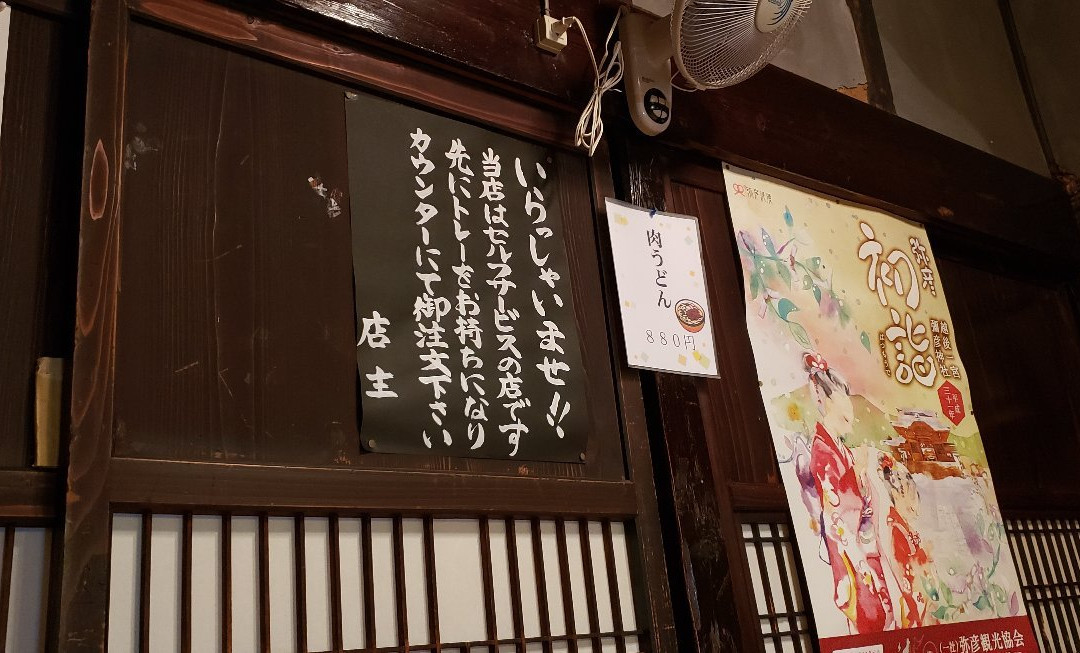 いらっしゃいませ!!
当店はセルフサービスの店です
先にトレーをお持ちになり
カウンターにて御注文下さい
店主
肉うどん
880円
弥彦
初詣
はつもうで
越後一宮
彌彦神社
平成
三十一年
(一社)弥彦観光協会